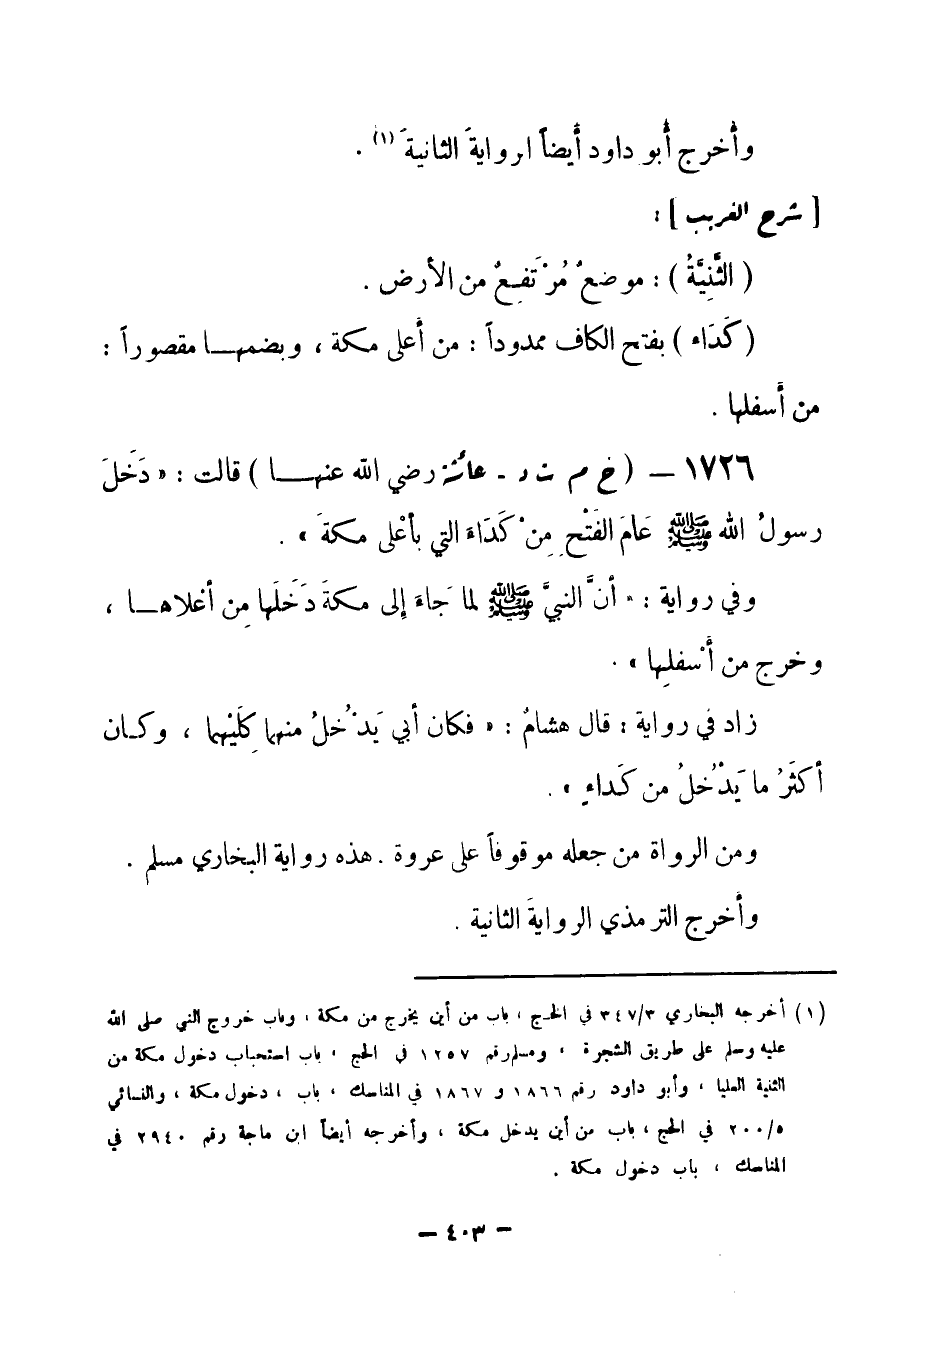 وأخرج أبو داود أيضاً الرواية الثانية (١) .
[ شرح الغريب ] :
( الثَّنِيَّةُ ) : موضعٌ مُرْتَفِعٌ من الأرض .
( كَدَاء ) بفتح الكاف ممدوداً : من أعلى مكة ، وبضمهـا مقصوراً :
من أسفلها .
١٧٢٦ – ( خ م ت د - عائشة رضي الله عنهـا ) قالت : « دَخَلَ
رسولُ الله ﷺ عَامَ الفَتْحِ مِنْ كَدَاءَ التي بأعْلى مكةَ » .
وفي رواية : « أنَّ النبيَّ ﷺ لما جَاءَ إلى مكةَ دَخَلَها مِن أعْلاهـا ،
وخرج من أسْفلِها » .
زاد في رواية : قال هشامٌ : « فكان أبي يَدْخُلُ منهما كِلَيْهِما ، وكـان
أكثَرُ ما يَدْخُلُ من كَداءٍ » .
ومن الرواة من جعله موقوفاً على عروة . هذه رواية البخاري مسلم .
وأخرج الترمذي الروايةَ الثانية .
(١) أخرجه البخاري ٣٤٧/٣ في الحج ، باب من أين يخرج من مكة ، وباب خروج النبي صلى الله
عليه وسلم على طريق الشجرة ، ومسلم رقم ١٢٥٧ في الحج ، باب استحباب دخول مكة من
الثنية العليا ، وأبو داود رقم ١٨٦٦ و ١٨٦٧ في المناسك ، باب ، دخول مكة ، والنسائي
٢٠٠/٥ في الحج ، باب من أين يدخل مكة ، وأخرجه أيضاً ابن ماجة رقم ٢٩٤٠ في
المناسك ، باب دخول مكة .
– ٤٠٣ –